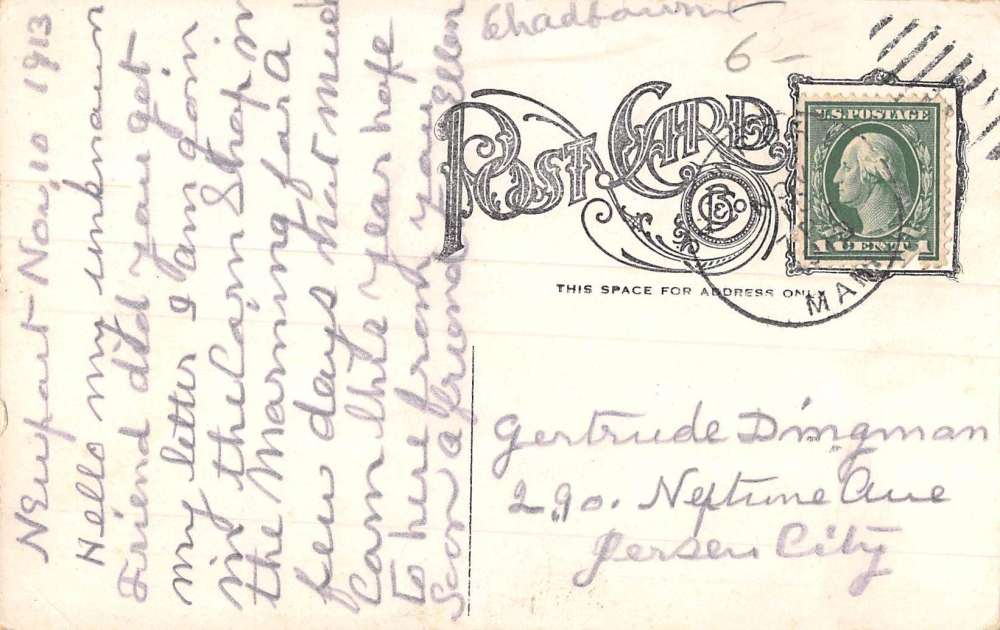 Chadbourne
6-
POST CARD
U.S. POSTAGE
1 CENT 1
THIS SPACE FOR ADDRESS ONLY
Newport Nov, 10 1913
Hello my unknown
Friend did you get
my letter I am goin
in the Corn Shop in
the Morning for a
few days not mud
Corn this year hope
to here from you
Soon a friend Ellen
Gertrude Dingman
290. Neptune Ave
Jersey City